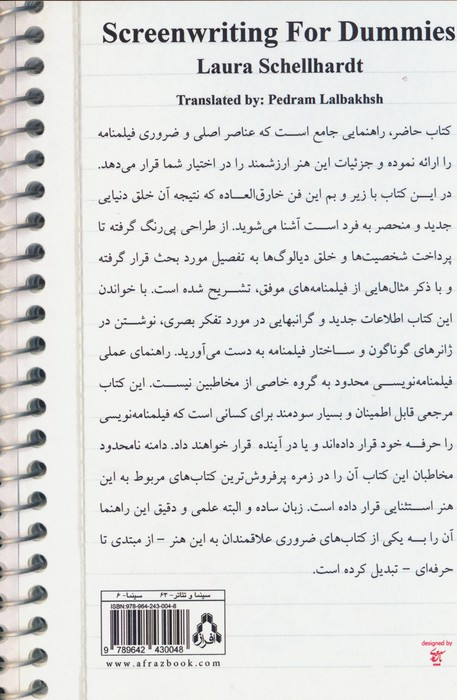 Screenwriting For Dummies
Laura Schellhardt
Translated by: Pedram Lalbakhsh
کتاب حاضر، راهنمایی جامع است که عناصر اصلی و ضروری فیلمنامه
را ارائه نموده و جزئیات این هنر ارزشمند را در اختیار شما قرار می‌دهد.
در این کتاب با زیر و بم این فن خارق‌العاده که نتیجه آن خلق دنیایی
جدید و منحصر به فرد است آشنا می‌شوید. از طراحی پی‌رنگ گرفته تا
پرداخت شخصیت‌ها و خلق دیالوگ‌ها به تفصیل مورد بحث قرار گرفته
و با ذکر مثال‌هایی از فیلمنامه‌های موفق، تشریح شده است. با خواندن
این کتاب اطلاعات جدید و گرانبهایی در مورد تفکر بصری، نوشتن در
ژانرهای گوناگون و ساختار فیلمنامه به دست می‌آورید. راهنمای عملی
فیلمنامه‌نویسی محدود به گروه خاصی از مخاطبین نیست. این کتاب
مرجعی قابل اطمینان و بسیار سودمند برای کسانی است که فیلمنامه‌نویسی
را حرفه خود قرار داده‌اند و یا در آینده قرار خواهند داد. دامنه نامحدود
مخاطبان این کتاب آن را در زمره پرفروش‌ترین کتاب‌های مربوط به این
هنر استثنایی قرار داده است. زبان ساده و البته علمی و دقیق این راهنما
آن را به یکی از کتاب‌های ضروری علاقمندان به این هنر – از مبتدی تا
حرفه‌ای – تبدیل کرده است.
سینما و تئاتر - ۶۲ سینما - ۶
ISBN:978-964-243-004-8
افراز
9 789642 430048
www.afrazbook.com
designed by